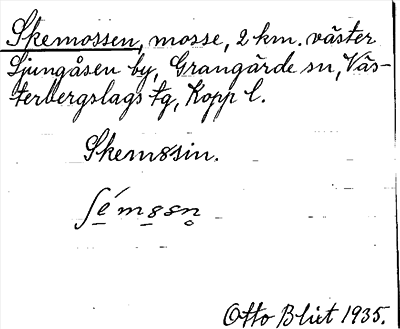 Skemossen, mosse, 2 km. väster
Ljungåsen by, Grangärde sn, Väs-
terbergslags tg, Kopp l.
Skem8sin.
ʃé m 8 8n̥
Otto Blixt 1935.